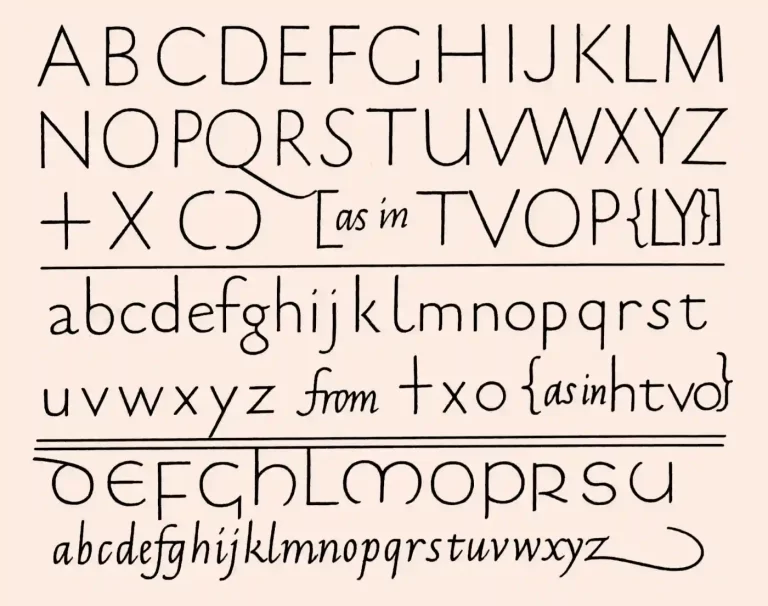 ABCDEFGHIJKLM
NOPQRSTUVWXYZ
+ X C Ɔ [as in TVOP{LY}]
abcdefghijklmnopqrst
uvwxyz from + x o {as in htvo}
DEFGHLMOPRSU
abcdefghijklmnopqrstuvwxyz